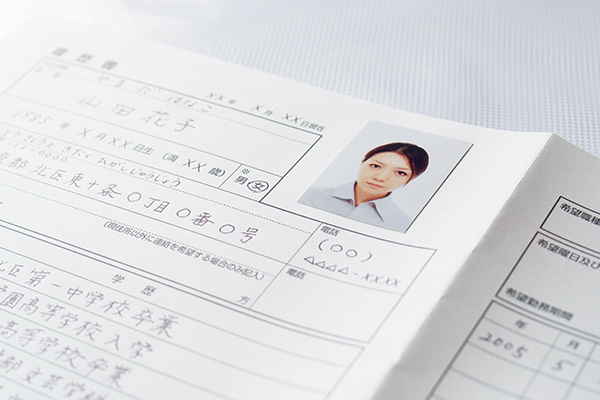 履歴書
やまだ はなこ
XX年 X月 XX日現在
山田花子
1985年 X月XX日生(満 XX 歳)
※
男・女
0000
京都北区東十条〇丁目〇番〇号
電話
(〇〇)
△△△△-XXXX
(現住所以外に連絡を希望する場合のみ記入)
電話
方
学歴
北区第一中学校卒業
学園高等学校入学
高等学校卒業
希望職種
希望曜日及び
希望勤務期間
年 月
2005 5